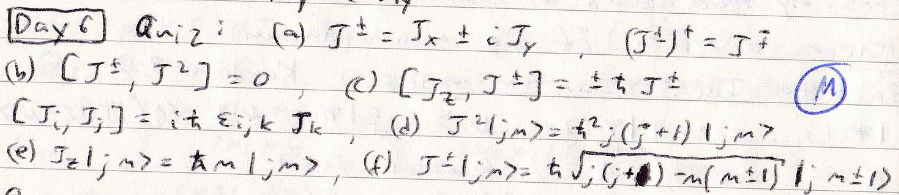 Day 6 Quiz: (a) J± = Jx ± i Jy , (J±)† = J∓
(b) [J±, J²] = 0 , (c) [Jz, J±] = ± ħ J± M
[Ji, Jj] = iħ εijk Jk , (d) J²|jm> = ħ² j(j+1) |jm>
(e) Jz|jm> = ħm |jm> , (f) J±|jm> = ħ √(j(j+1) - m(m±1)) |j m±1>